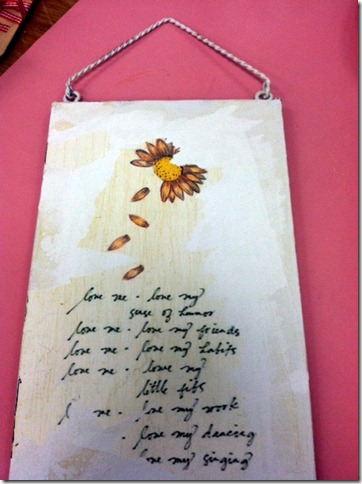 love me - love my
sense of humor
love me - love my friends
love me - love my habits
love me - love my
little fits
me - love my work
- love my dancing
love my singing